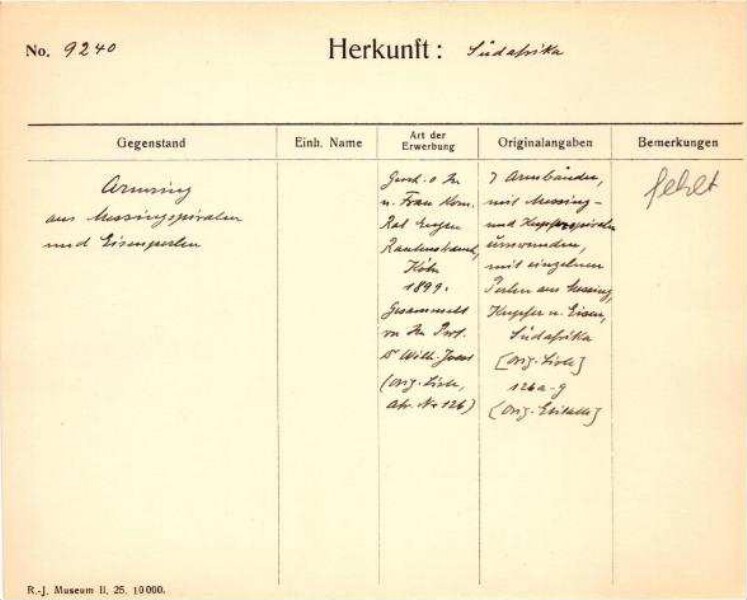 No. 9240 Herkunft: Südafrika
Gegenstand
Einh. Name
Art der
Erwerbung
Originalangaben
Bemerkungen
Armring
aus Messingspiralen
und Eisenperlen
Gesch. v. Hr.
u. Frau Kom.
Rat Eugen
Rautenstrauch,
Köln
1899.
Gesammelt
von Hr. Prof.
Dr Wilh. Joest
(Orig. Liste,
Afr. No 126)
7 Armbänder,
mit Messing-
und Kupferspiralen
umwunden,
mit einzelnen
Perlen aus Messing,
Kupfer u. Eisen,
Südafrika
[Orig. Liste]
126 a-g
[Orig. Etikett]
fehlt
R.-J. Museum II. 25. 10000.